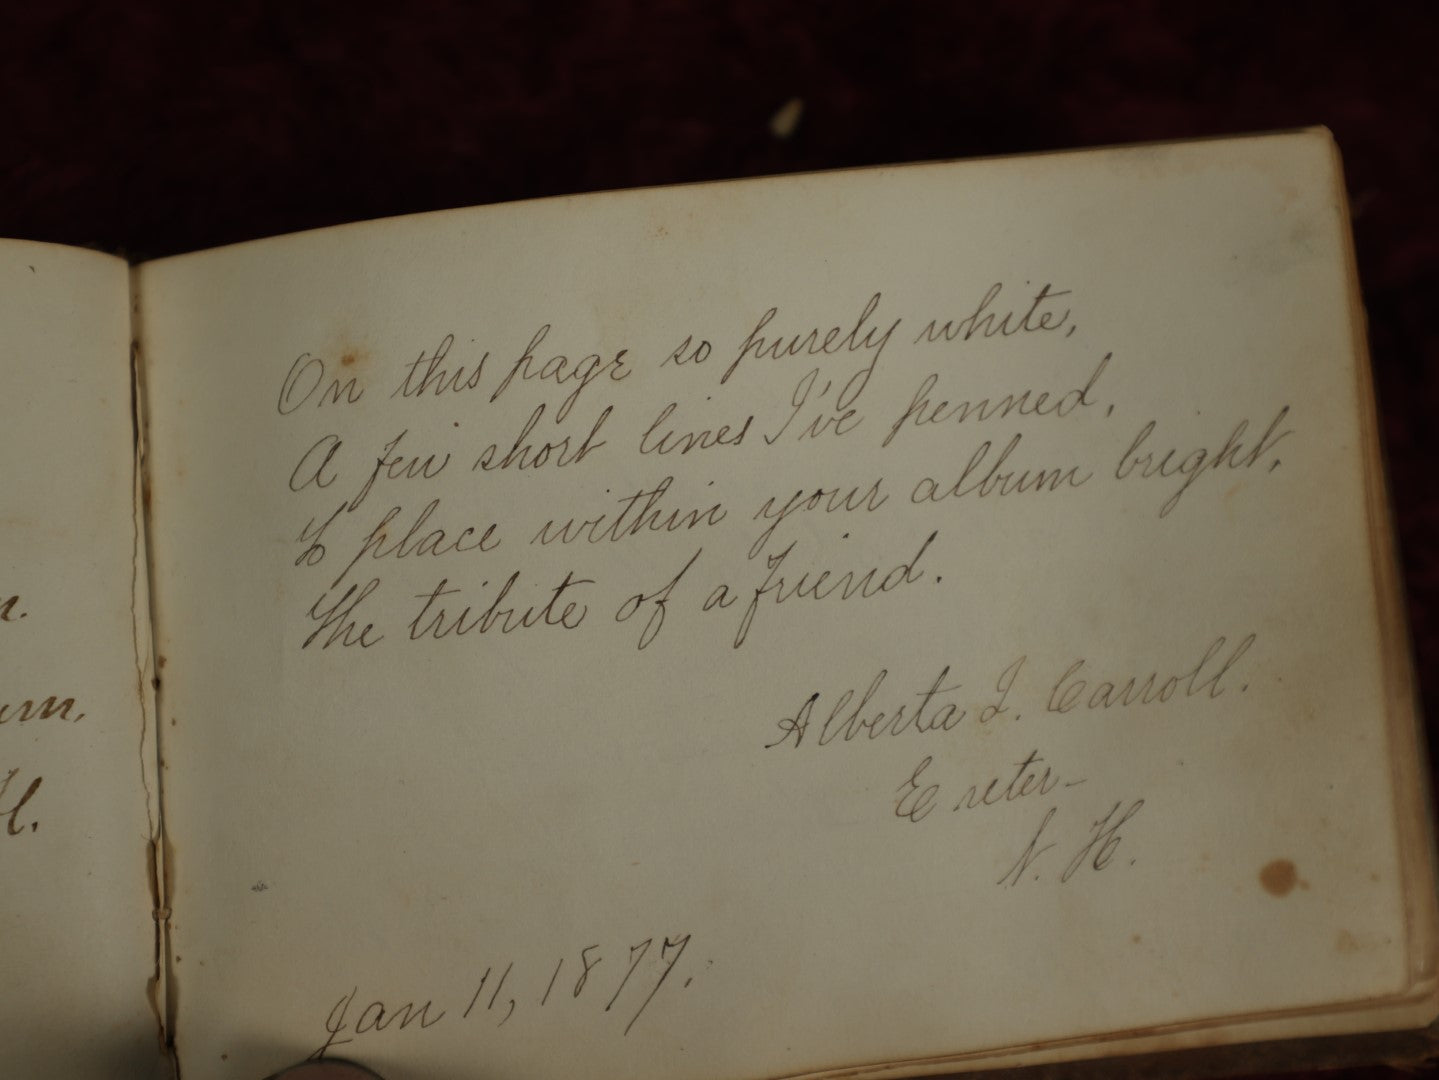 On this page so purely white,
A few short lines I've penned,
To place within your album bright,
The tribute of a friend.
Alberta J. Carroll.
Exeter-
N. H.
Jan 11, 1877.